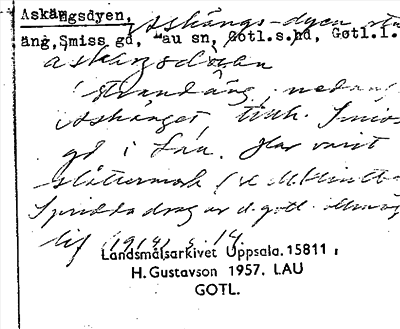 Askängsdyen, Askängs-dyen
äng, Smiss gd, Lau sn, Gotl.s.hd, Gotl.l.
i strandäng nedan
Askänget, tillh. Smiss
gd i Lau. Har varit
slåttermark (se M. Klintberg
Spridda drag ur d. gotl. allmoge
lif (1914) s. 14
Landsmålsarkivet Uppsala. 15811
H. Gustavson 1957. LAU
GOTL.